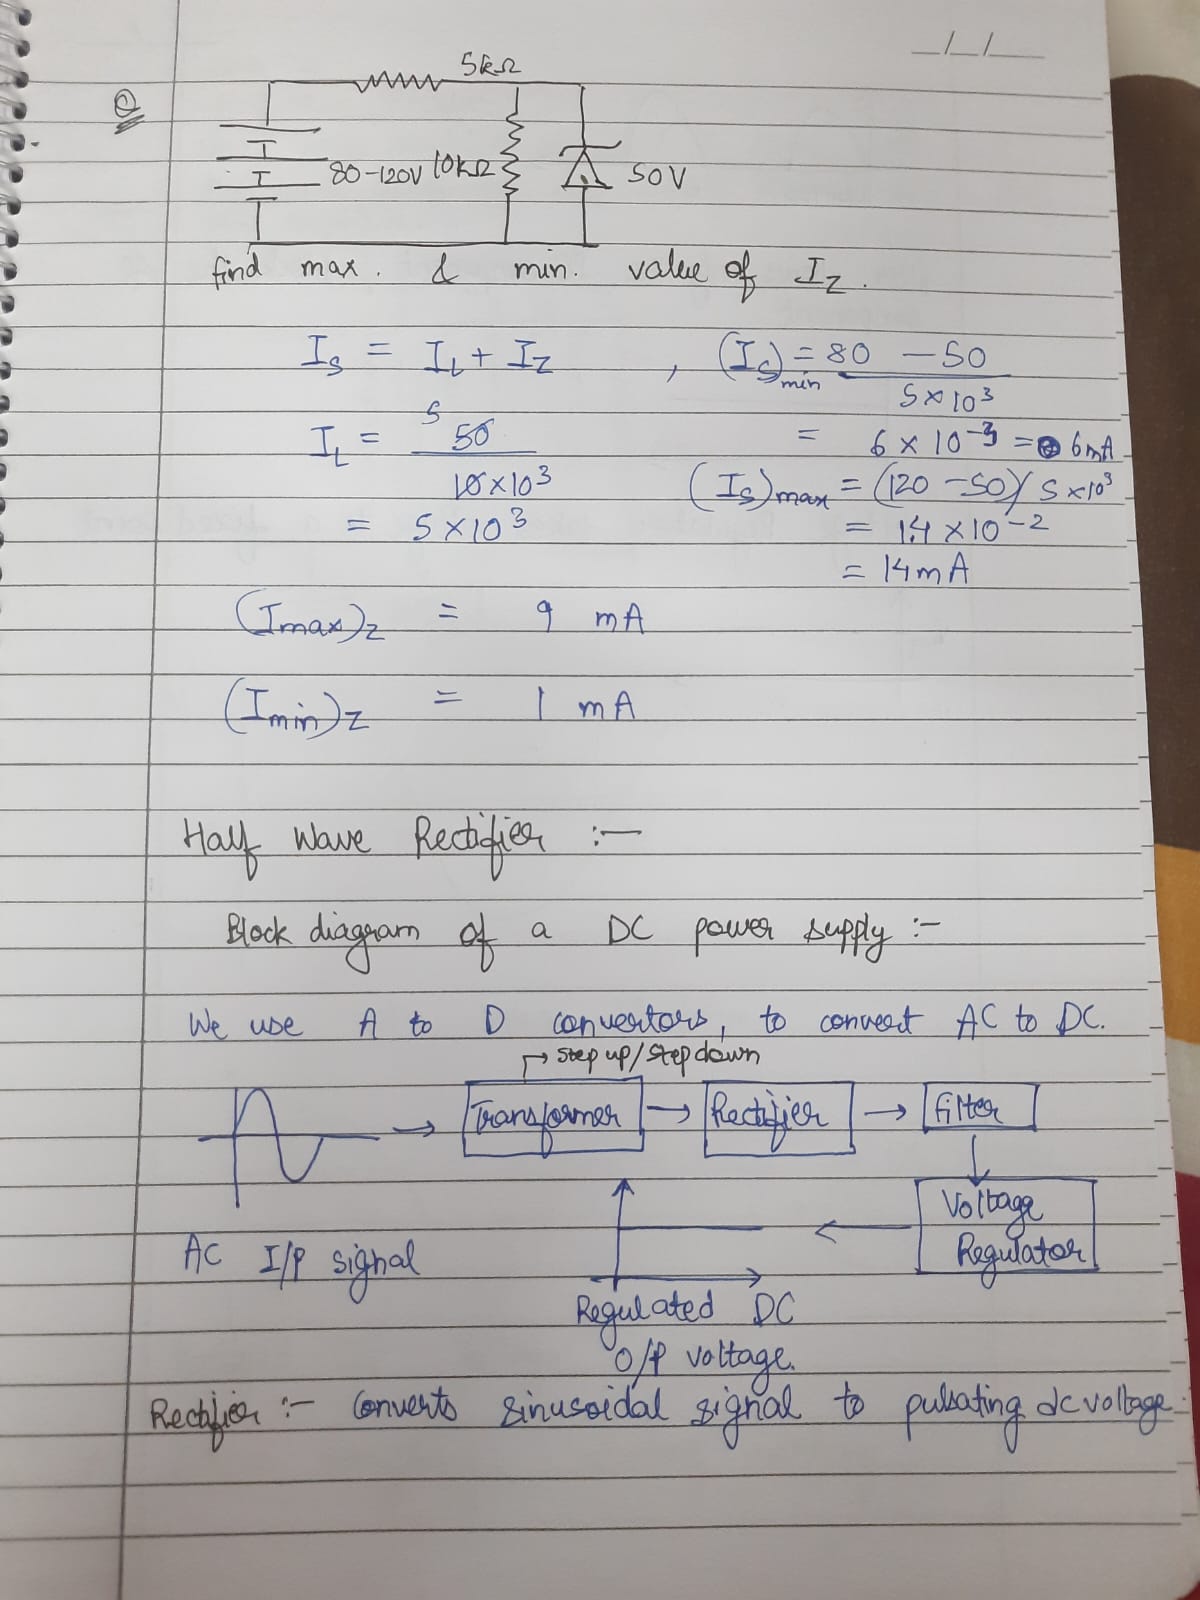 _/_/_
Q
5kΩ
80-120V 10kΩ 50V
find max. & min. value of I_Z.
I_S = I_L + I_Z , (I_S)_min = 80 - 50 / 5×10^3
I_L = 5 50 / 10×10^3
= 6×10^-3 = 6mA
(I_S)_max = (120-50)/5×10^3
= 5×10^3
= 1.4×10^-2
= 14mA
(I_max)_Z = 9 mA
(I_min)_Z = 1 mA
Half Wave Rectifier :-
Block diagram of a DC power supply :-
We use A to D convertors, to convert AC to DC.
→ step up/step down
→ Transformer → Rectifier → Filter
Voltage
Regulator
AC I/P signal
Regulated DC
O/P voltage.
Rectifier :- Converts sinusoidal signal to pulsating dc voltage.